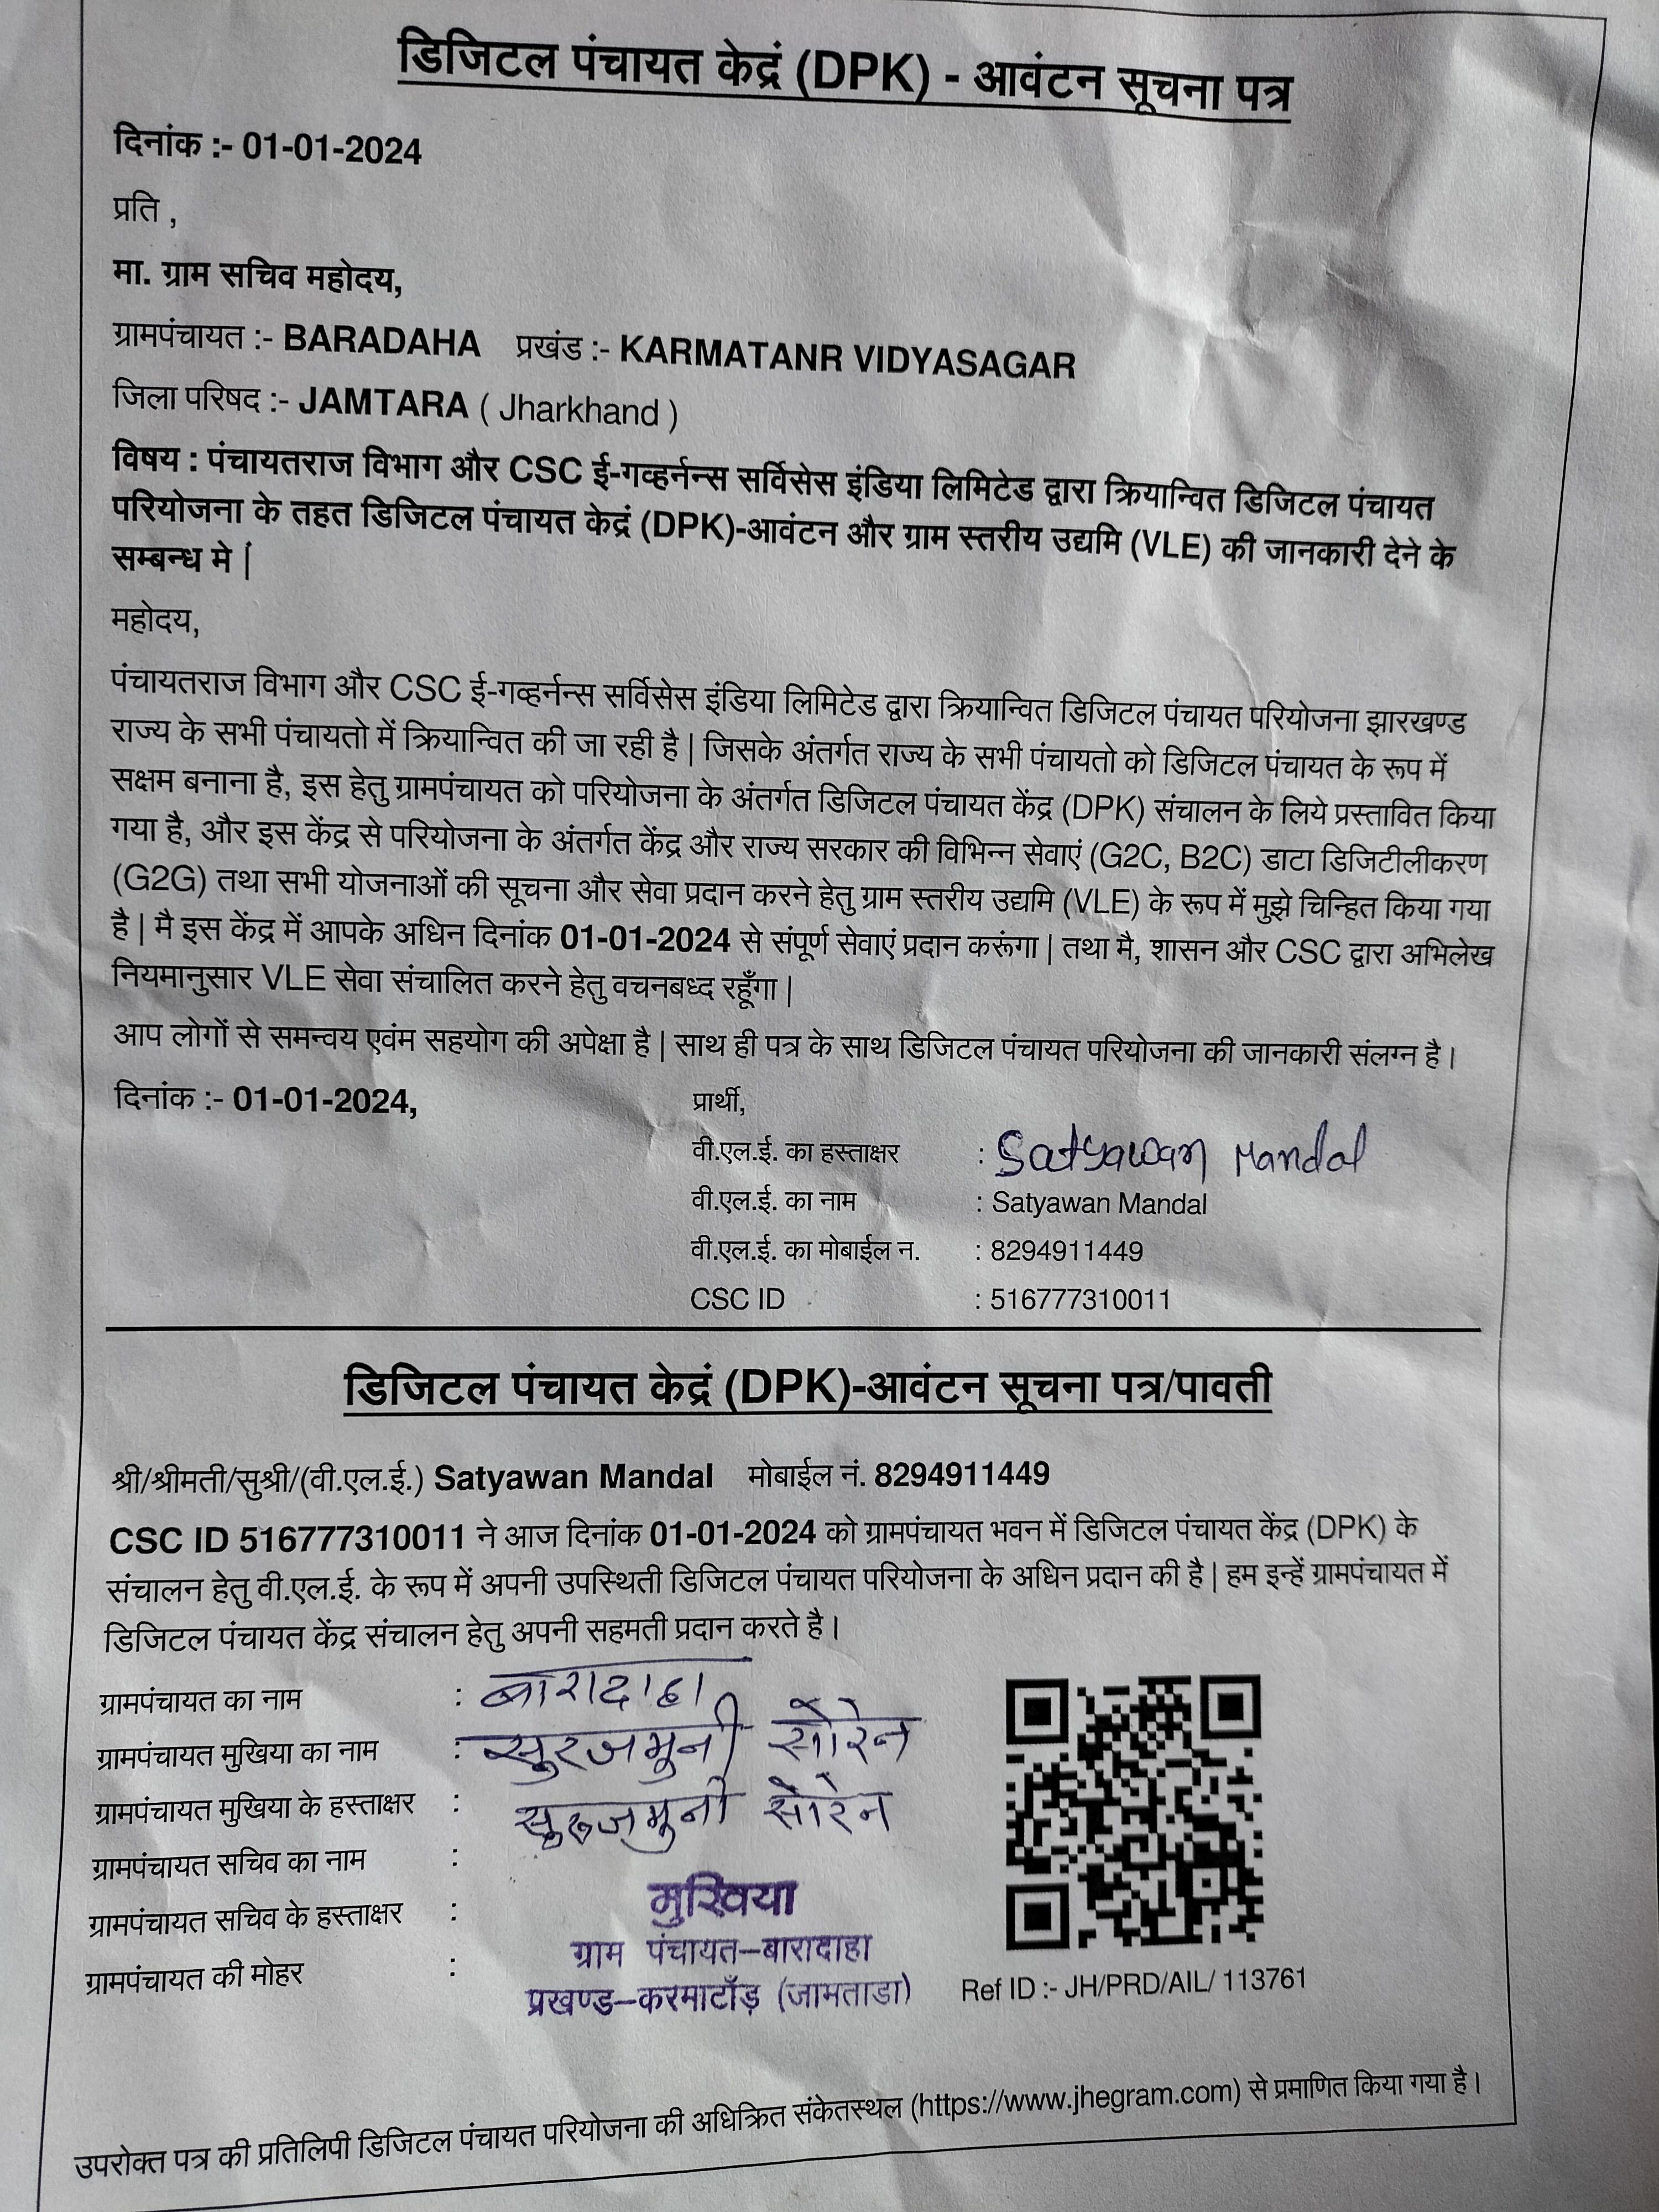 डिजिटल पंचायत केद्रं (DPK) - आवंटन सूचना पत्र
दिनांक :- 01-01-2024
प्रति ,
मा. ग्राम सचिव महोदय,
ग्रामपंचायत :- BARADAHA प्रखंड :- KARMATANR VIDYASAGAR
जिला परिषद :- JAMTARA ( Jharkhand )
विषय : पंचायतराज विभाग और CSC ई-गव्हर्नन्स सर्विसेस इंडिया लिमिटेड द्वारा क्रियान्वित डिजिटल पंचायत
परियोजना के तहत डिजिटल पंचायत केद्रं (DPK)-आवंटन और ग्राम स्तरीय उद्यमि (VLE) की जानकारी देने के
सम्बन्ध मे |
महोदय,
पंचायतराज विभाग और CSC ई-गव्हर्नन्स सर्विसेस इंडिया लिमिटेड द्वारा क्रियान्वित डिजिटल पंचायत परियोजना झारखण्ड
राज्य के सभी पंचायतो में क्रियान्वित की जा रही है | जिसके अंतर्गत राज्य के सभी पंचायतो को डिजिटल पंचायत के रूप में
सक्षम बनाना है, इस हेतु ग्रामपंचायत को परियोजना के अंतर्गत डिजिटल पंचायत केंद्र (DPK) संचालन के लिये प्रस्तावित किया
गया है, और इस केंद्र से परियोजना के अंतर्गत केंद्र और राज्य सरकार की विभिन्न सेवाएं (G2C, B2C) डाटा डिजिटीलीकरण
(G2G) तथा सभी योजनाओं की सूचना और सेवा प्रदान करने हेतु ग्राम स्तरीय उद्यमि (VLE) के रूप में मुझे चिन्हित किया गया
है | मै इस केंद्र में आपके अधिन दिनांक 01-01-2024 से संपूर्ण सेवाएं प्रदान करूंगा | तथा मै, शासन और CSC द्वारा अभिलेख
नियमानुसार VLE सेवा संचालित करने हेतु वचनबध्द रहूँगा |
आप लोगों से समन्वय एवंम सहयोग की अपेक्षा है | साथ ही पत्र के साथ डिजिटल पंचायत परियोजना की जानकारी संलग्न है।
दिनांक :- 01-01-2024, प्रार्थी,
वी.एल.ई. का हस्ताक्षर : Satyawan Mandal
वी.एल.ई. का नाम : Satyawan Mandal
वी.एल.ई. का मोबाईल न. : 8294911449
CSC ID : 516777310011
डिजिटल पंचायत केद्रं (DPK)-आवंटन सूचना पत्र/पावती
श्री/श्रीमती/सुश्री/(वी.एल.ई.) Satyawan Mandal मोबाईल नं. 8294911449
CSC ID 516777310011 ने आज दिनांक 01-01-2024 को ग्रामपंचायत भवन में डिजिटल पंचायत केंद्र (DPK) के
संचालन हेतु वी.एल.ई. के रूप में अपनी उपस्थिती डिजिटल पंचायत परियोजना के अधिन प्रदान की है | हम इन्हें ग्रामपंचायत में
डिजिटल पंचायत केंद्र संचालन हेतु अपनी सहमती प्रदान करते है।
ग्रामपंचायत का नाम : बारादाहा
ग्रामपंचायत मुखिया का नाम : सुरजमुनी सोरेन
ग्रामपंचायत मुखिया के हस्ताक्षर : सुरूजमुनी सोरेन
ग्रामपंचायत सचिव का नाम :
ग्रामपंचायत सचिव के हस्ताक्षर :
ग्रामपंचायत की मोहर :
मुखिया
ग्राम पंचायत–बारादाहा
प्रखण्ड–करमाटाँड़ (जामताडा)
Ref ID :- JH/PRD/AIL/ 113761
उपरोक्त पत्र की प्रतिलिपी डिजिटल पंचायत परियोजना की अधिक्रित संकेतस्थल (https://www.jhegram.com) से प्रमाणित किया गया है।